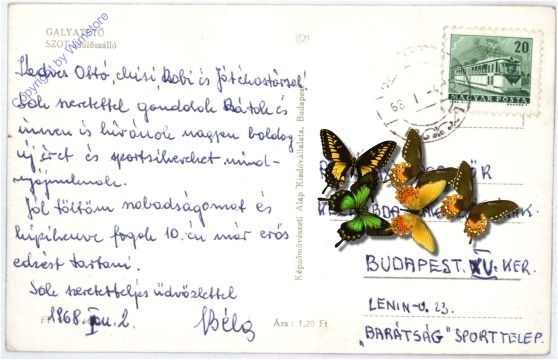 GALYATETŐ
SZOT üdülőszálló
Copyright by Wimstore
Kedves Ottó, Misi, Robi és Játékostársak!
Sok szeretettel gondolok Rátok és
innen is kívánok nagyon boldog
új évet és sportsikereket mind-
nyájunknak.
Jól töltöm szabadságomat és
kipihenve fogok 10.-én már erős
edzést tartani.
Sok szeretetteljes üdvözlettel
1968. jan. 2. Béla
Ára: 1,20 Ft
Képzőművészeti Alap Kiadóvállalata, Budapest
20
MAGYAR POSTA
68 I -4
BUDAPEST. XV. KER.
LENIN-u. 23.
"BARÁTSÁG" SPORTTELEP.